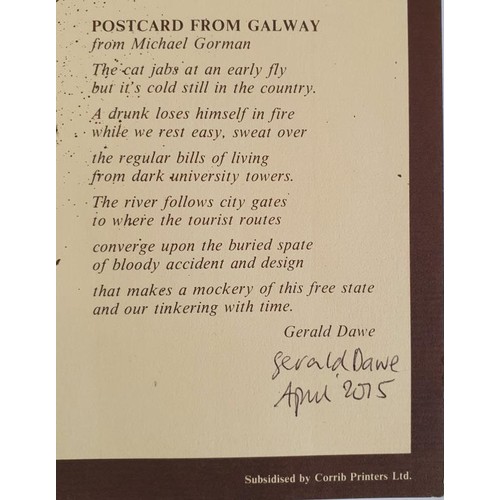 POSTCARD FROM GALWAY
from Michael Gorman
The cat jabs at an early fly
but it's cold still in the country.
A drunk loses himself in fire
while we rest easy, sweat over
the regular bills of living
from dark university towers.
The river follows city gates
to where the tourist routes
converge upon the buried spate
of bloody accident and design
that makes a mockery of this free state
and our tinkering with time.
Gerald Dawe
Gerald Dawe
April 2015
Subsidised by Corrib Printers Ltd.